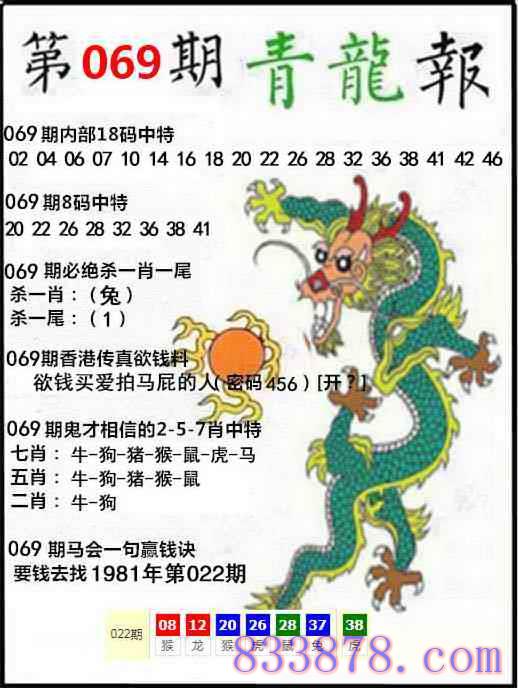 第069期 青龍報
069期内部18码中特
02 04 06 07 10 14 16 18 20 22 26 28 32 36 38 41 42 46
069期8码中特
20 22 26 28 32 36 38 41
069 期必绝杀一肖一尾
杀一肖：（兔）
杀一尾：（1）
069期香港传真欲钱料
欲钱买爱拍马屁的人(密码456）[开？]
069期鬼才相信的2-5-7肖中特
七肖：牛-狗-猪-猴-鼠-虎-马
五肖：牛-狗-猪-猴-鼠
二肖：牛-狗
069 期马会一句赢钱诀
要钱去找1981年第022期
022期 08 12 20 26 28 37 38
猴 龙 猴 虎 鼠 兔 虎
833878.com